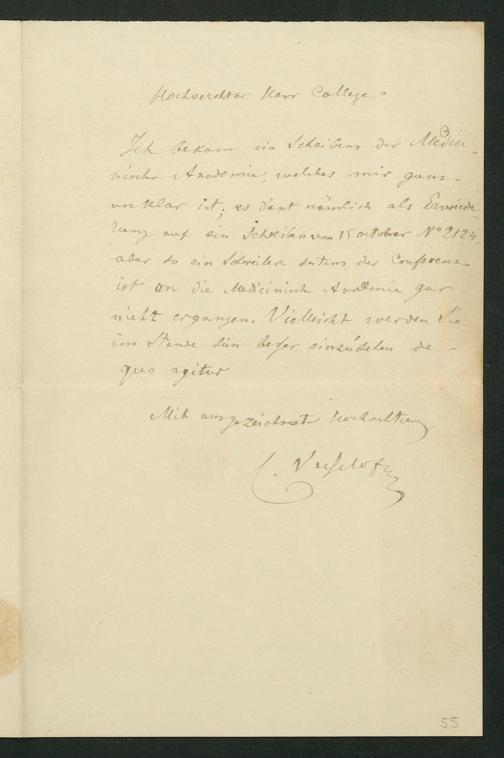 Hochverehrter Herr College
Ich bekam ein Schreibens der Medici-
nische Academie, welches mir ganz
unklar ist; es dant nämlich als Erwiede-
rung auf ein Schreiben vom 15 october No 2124,
aber so ein Schreiben seitens der Conferenz
ist an die Medicinisch Academie gar
nicht ergangen. Vielleicht werden Sie
im Stande sün beßer einzúsehen de
quo agitur
Mit ausgezeichnete Hochachtung
C. Vesselofsky
55